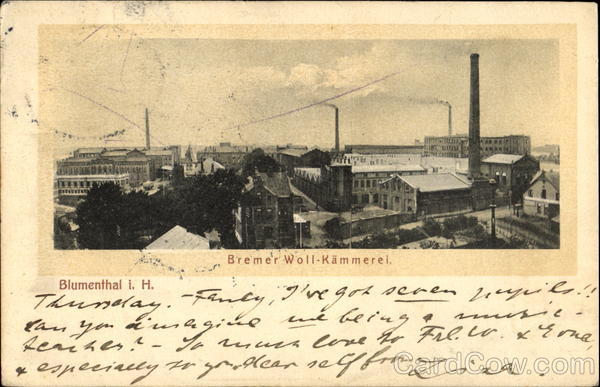 Bremer Woll-Kämmerei.
Blumenthal i. H.
Thursday. - I've got seven pupils!!
Can you imagine me being a music-
teacher? - So much love to Frl. W. &
& especially so you dear self from
CardCow.com